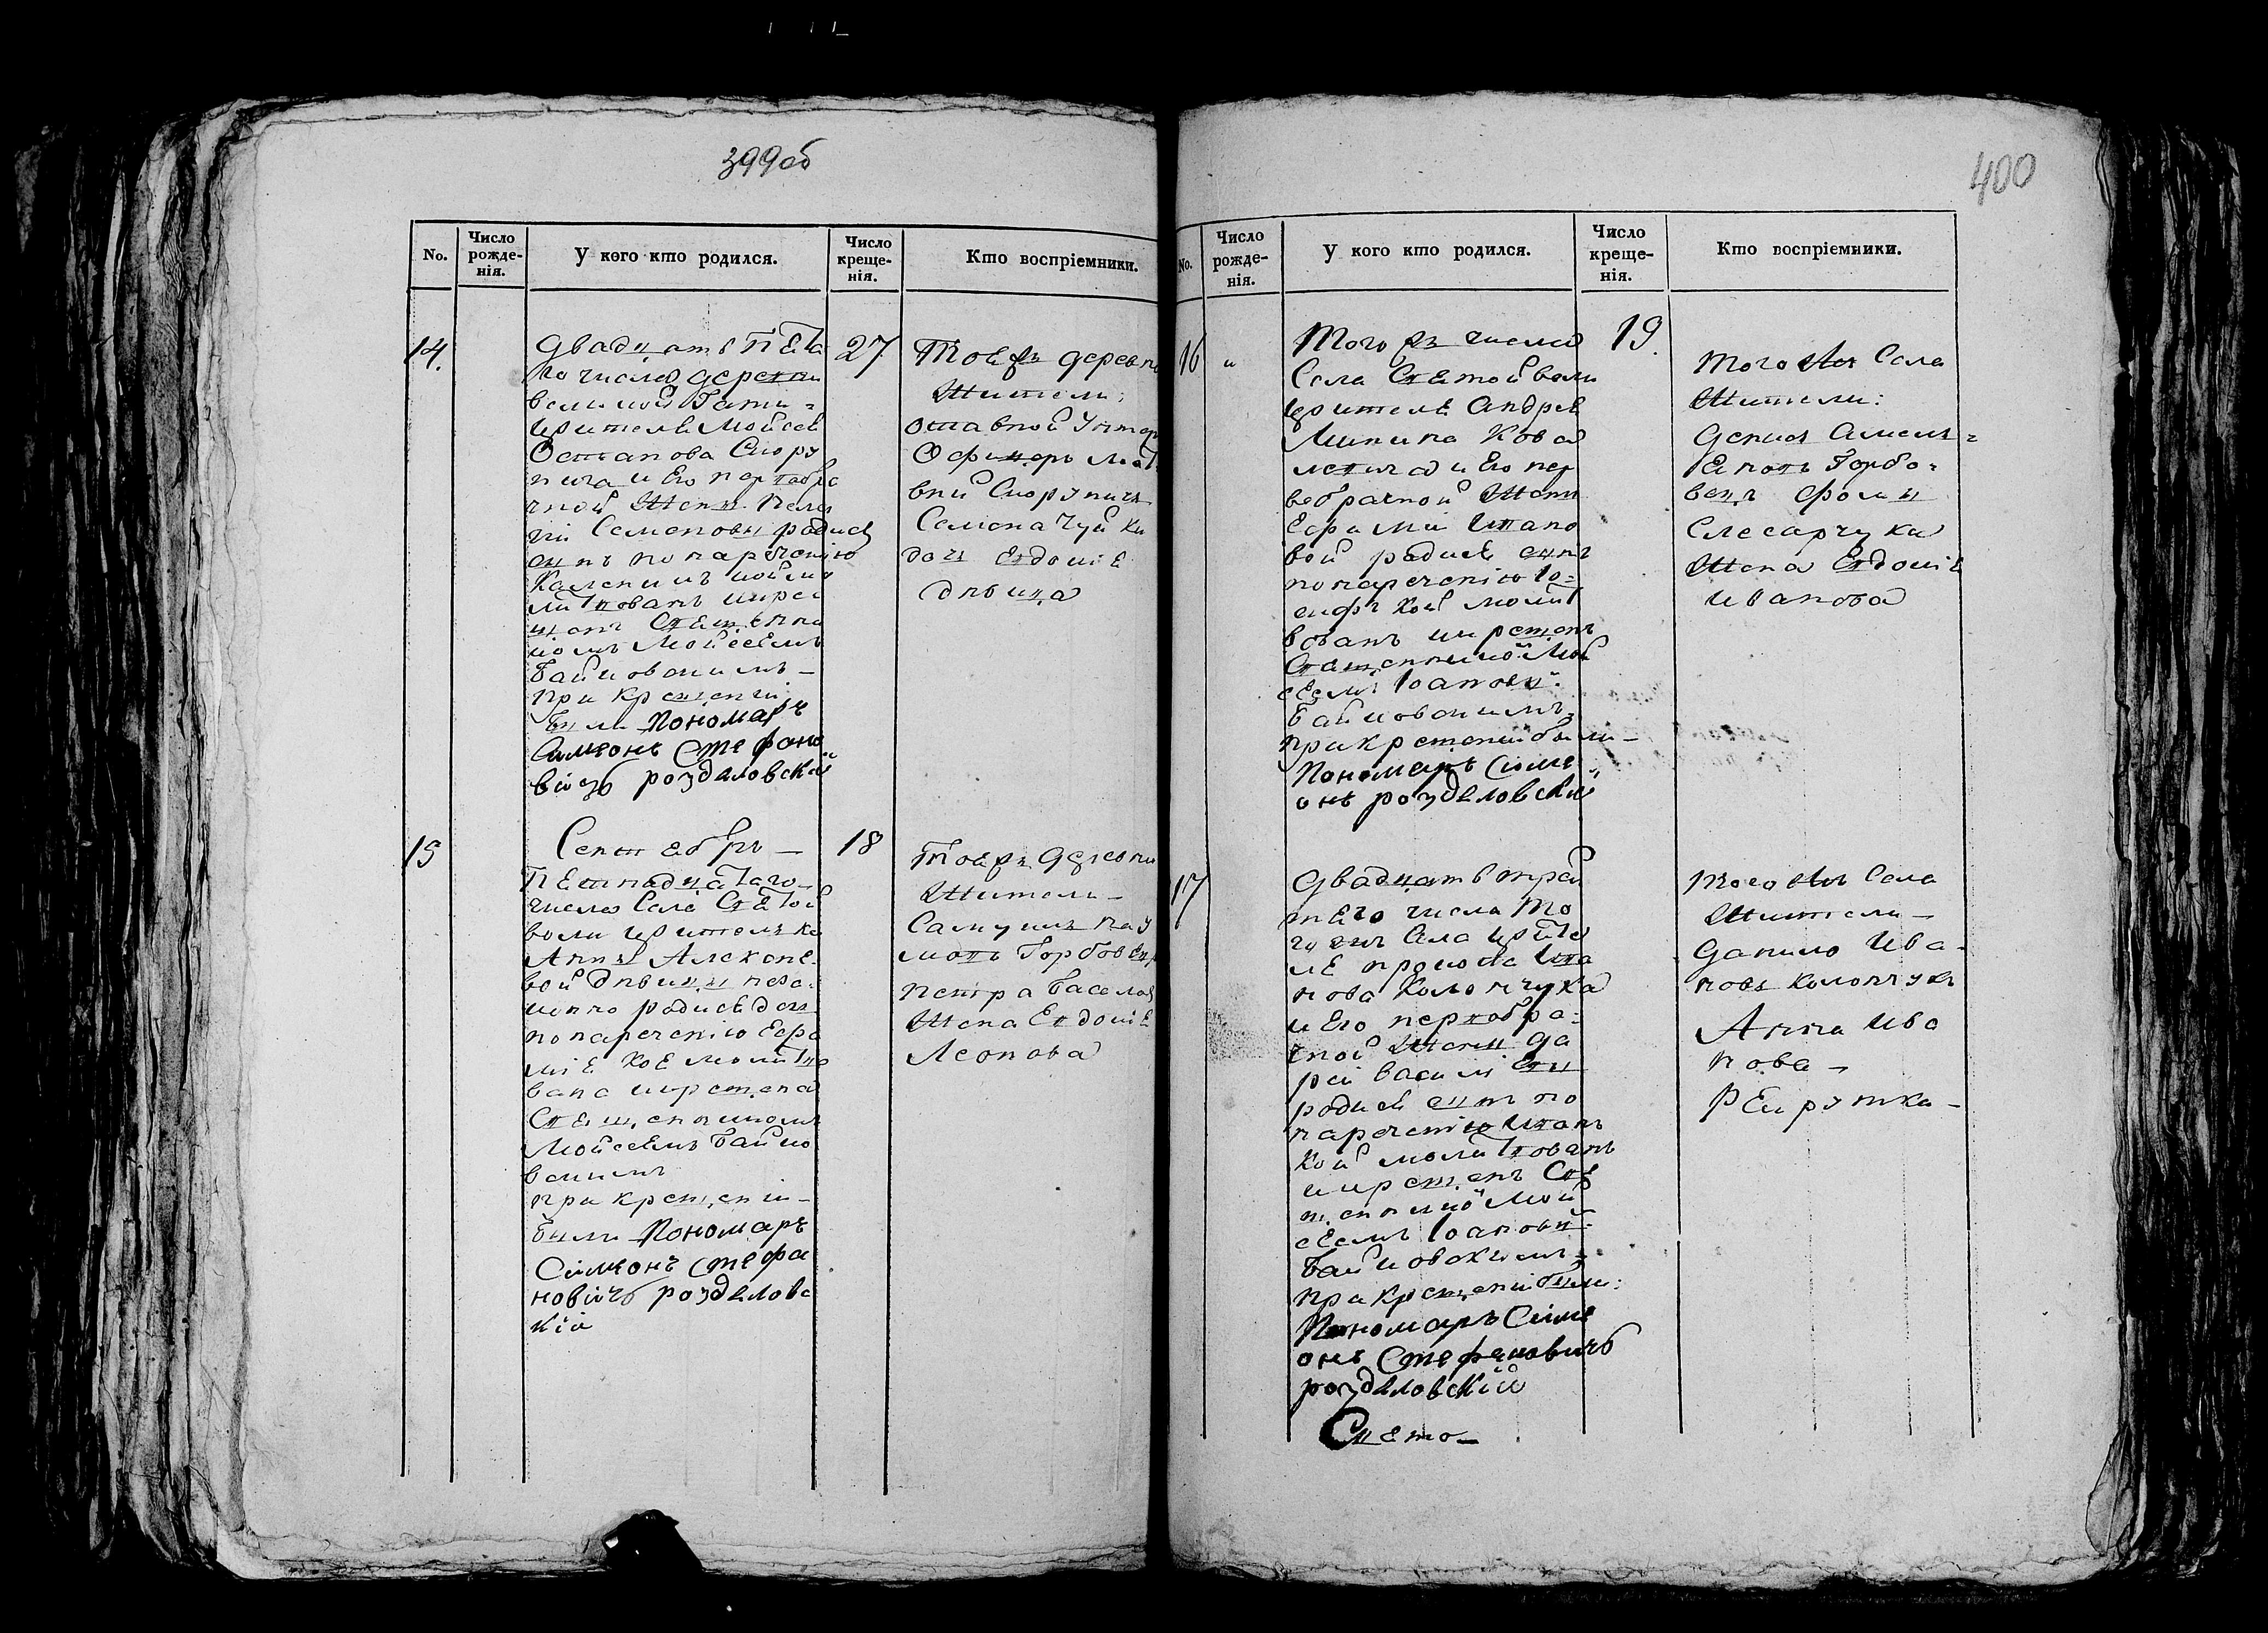 399об
No.
Число рожде- нія.
У кого кто родился.
Число креще- нія.
Кто воспріемники.
14.
Двадцать пята
го числа деревни
великой Гати=
жителя Мойсея
Остапова Скору
пича и Его первобра
чной жены Пела
гіи Семеновы родися
сынъ по нареченію
Каленикъ кой мо
литвованъ и кре
щенъ Священни
комъ Мойсеемъ
Байковскимъ—
при крещеніи
были Пономарь
Симеонъ Стефано
вичъ роздяловскій
27
Тояжъ деревни
Жители:
Офицеръ
Семена
дочь Евдокія
дѣвица
15
Септябрь—
Пятнадцатаго
числа Села Святой
воли жителька
Анны Алексѣе
вой дѣвицы неза
конно родися дочь
по нареченію Евфи
мія коя молитво
вана и крещена
Священникомъ
Мойсеемъ Байко
вскимъ
при крещеніи—
были Пономарь
Симеонъ Стефа
новичъ роздяловс
кій
18
Тояжъ деревни
Жители—
Горбовец
Петра
Жена Евдокія
Леонова
400
No.
Число рожде- нія.
У кого кто родился.
Число креще- нія.
Кто воспріемники.
16
"
Тогожъ числа
Села Святой воли
жителя Андрея
Микита Кова
левича и Его пер
вобрачной жены
Евфиміи Ивано
вой родися сынъ
по нареченію Іо=
сифъ кой молит
вованъ и крещенъ
Священнико Мой
сеемъ Іоановы
Байковскимъ
при крещеніи были—
Пономарь Симе
онъ роздяловскій
19.
Того жъ Села
Жители:
Денисъ Амель=
Горбо=
вецъ Фомы
Слесарчука
Жена Евдокія
Иванова
17
Двадцать тре
тяго числа То
го жъ Села жите
ля Прокопа Ива
нова Колончука
и Его первобра=
чной жены Да
рьи Василіевы
родися сынъ по
нареченію Иванъ
кой молитвованъ
и крещенъ Свя
щеннико Мой
сеемъ Іоановы
Байковскимъ
при крещеніи были:
Пономарь Симе
онъ Стефановичъ
роздяловскій
Свято—
Того жъ Села
Жители—
Данило Ива-
новъ Колончукъ
Анна Ива
нова—